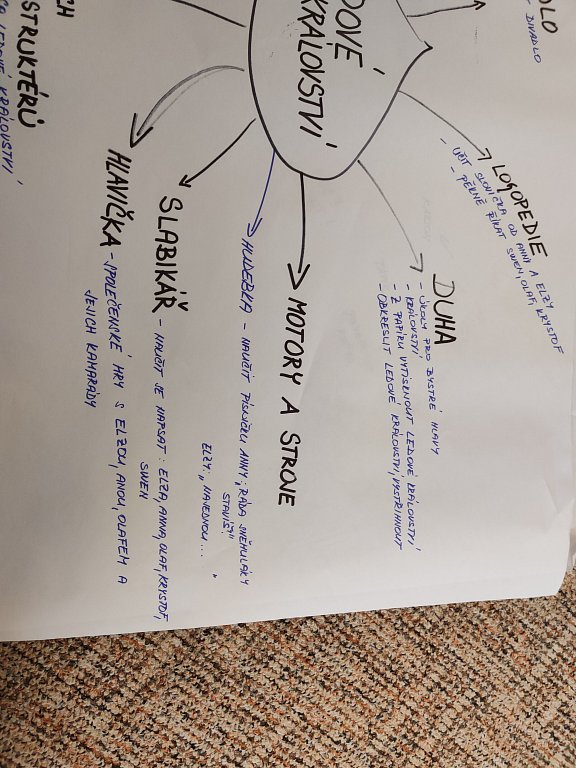 DOVÉ
KRÁLOVSTVÍ
DLO
- DIVADLO
LOGOPEDIE
- UČIT SLOVÍČKA OD ANNY A ELZY, KRYSTOF
- PĚKNĚ ŘÍKAT SWEN, OLAF,
DUHA
- ÚKOLY PRO BYSTRÉ HLAVY
- KRÁLOVSTVÍ
- Z PAPÍRU VYTISKNOUT LEDOVÉ KRÁLOVSTVÍ
- OBKRESLIT LEDOVÉ KRÁLOVSTVÍ, VYSTŘIHNOUT
MOTORY A STROJE
HUDEBKA - NAUČIT PÍSNIČKU ANNY: „RÁDA SNĚHULÁKY
STAVÍŠ?"
ELZY: „NAJEDNOU... "
SLABIKÁŘ - NAUČIT SE NAPSAT: ELZA, ANNA, OLAF, KRYSTOF,
SWEN
HLAVIČKA - SPOLEČENSKÉ HRY S ELZOU, ANOU, OLAFEM A
JEJICH KAMARÁDY
CH
STRUKTÉRŮ
LEDOVÉ KRÁLOVSTVÍ